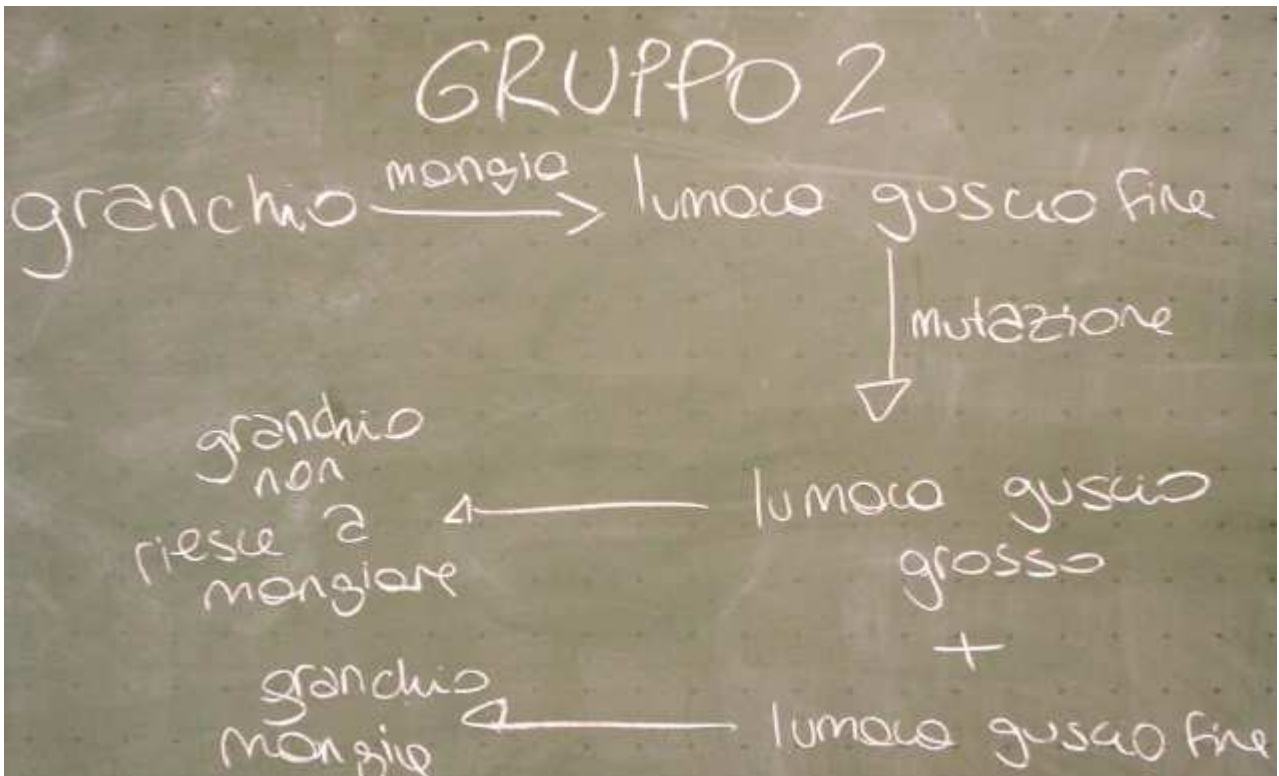 GRUPPO 2
granchio mangia lumaca guscio fine
mutazione
granchio
non
riesce a
mangiare
lumaca guscio
grosso
+
granchio
mangia
lumaca guscio fine